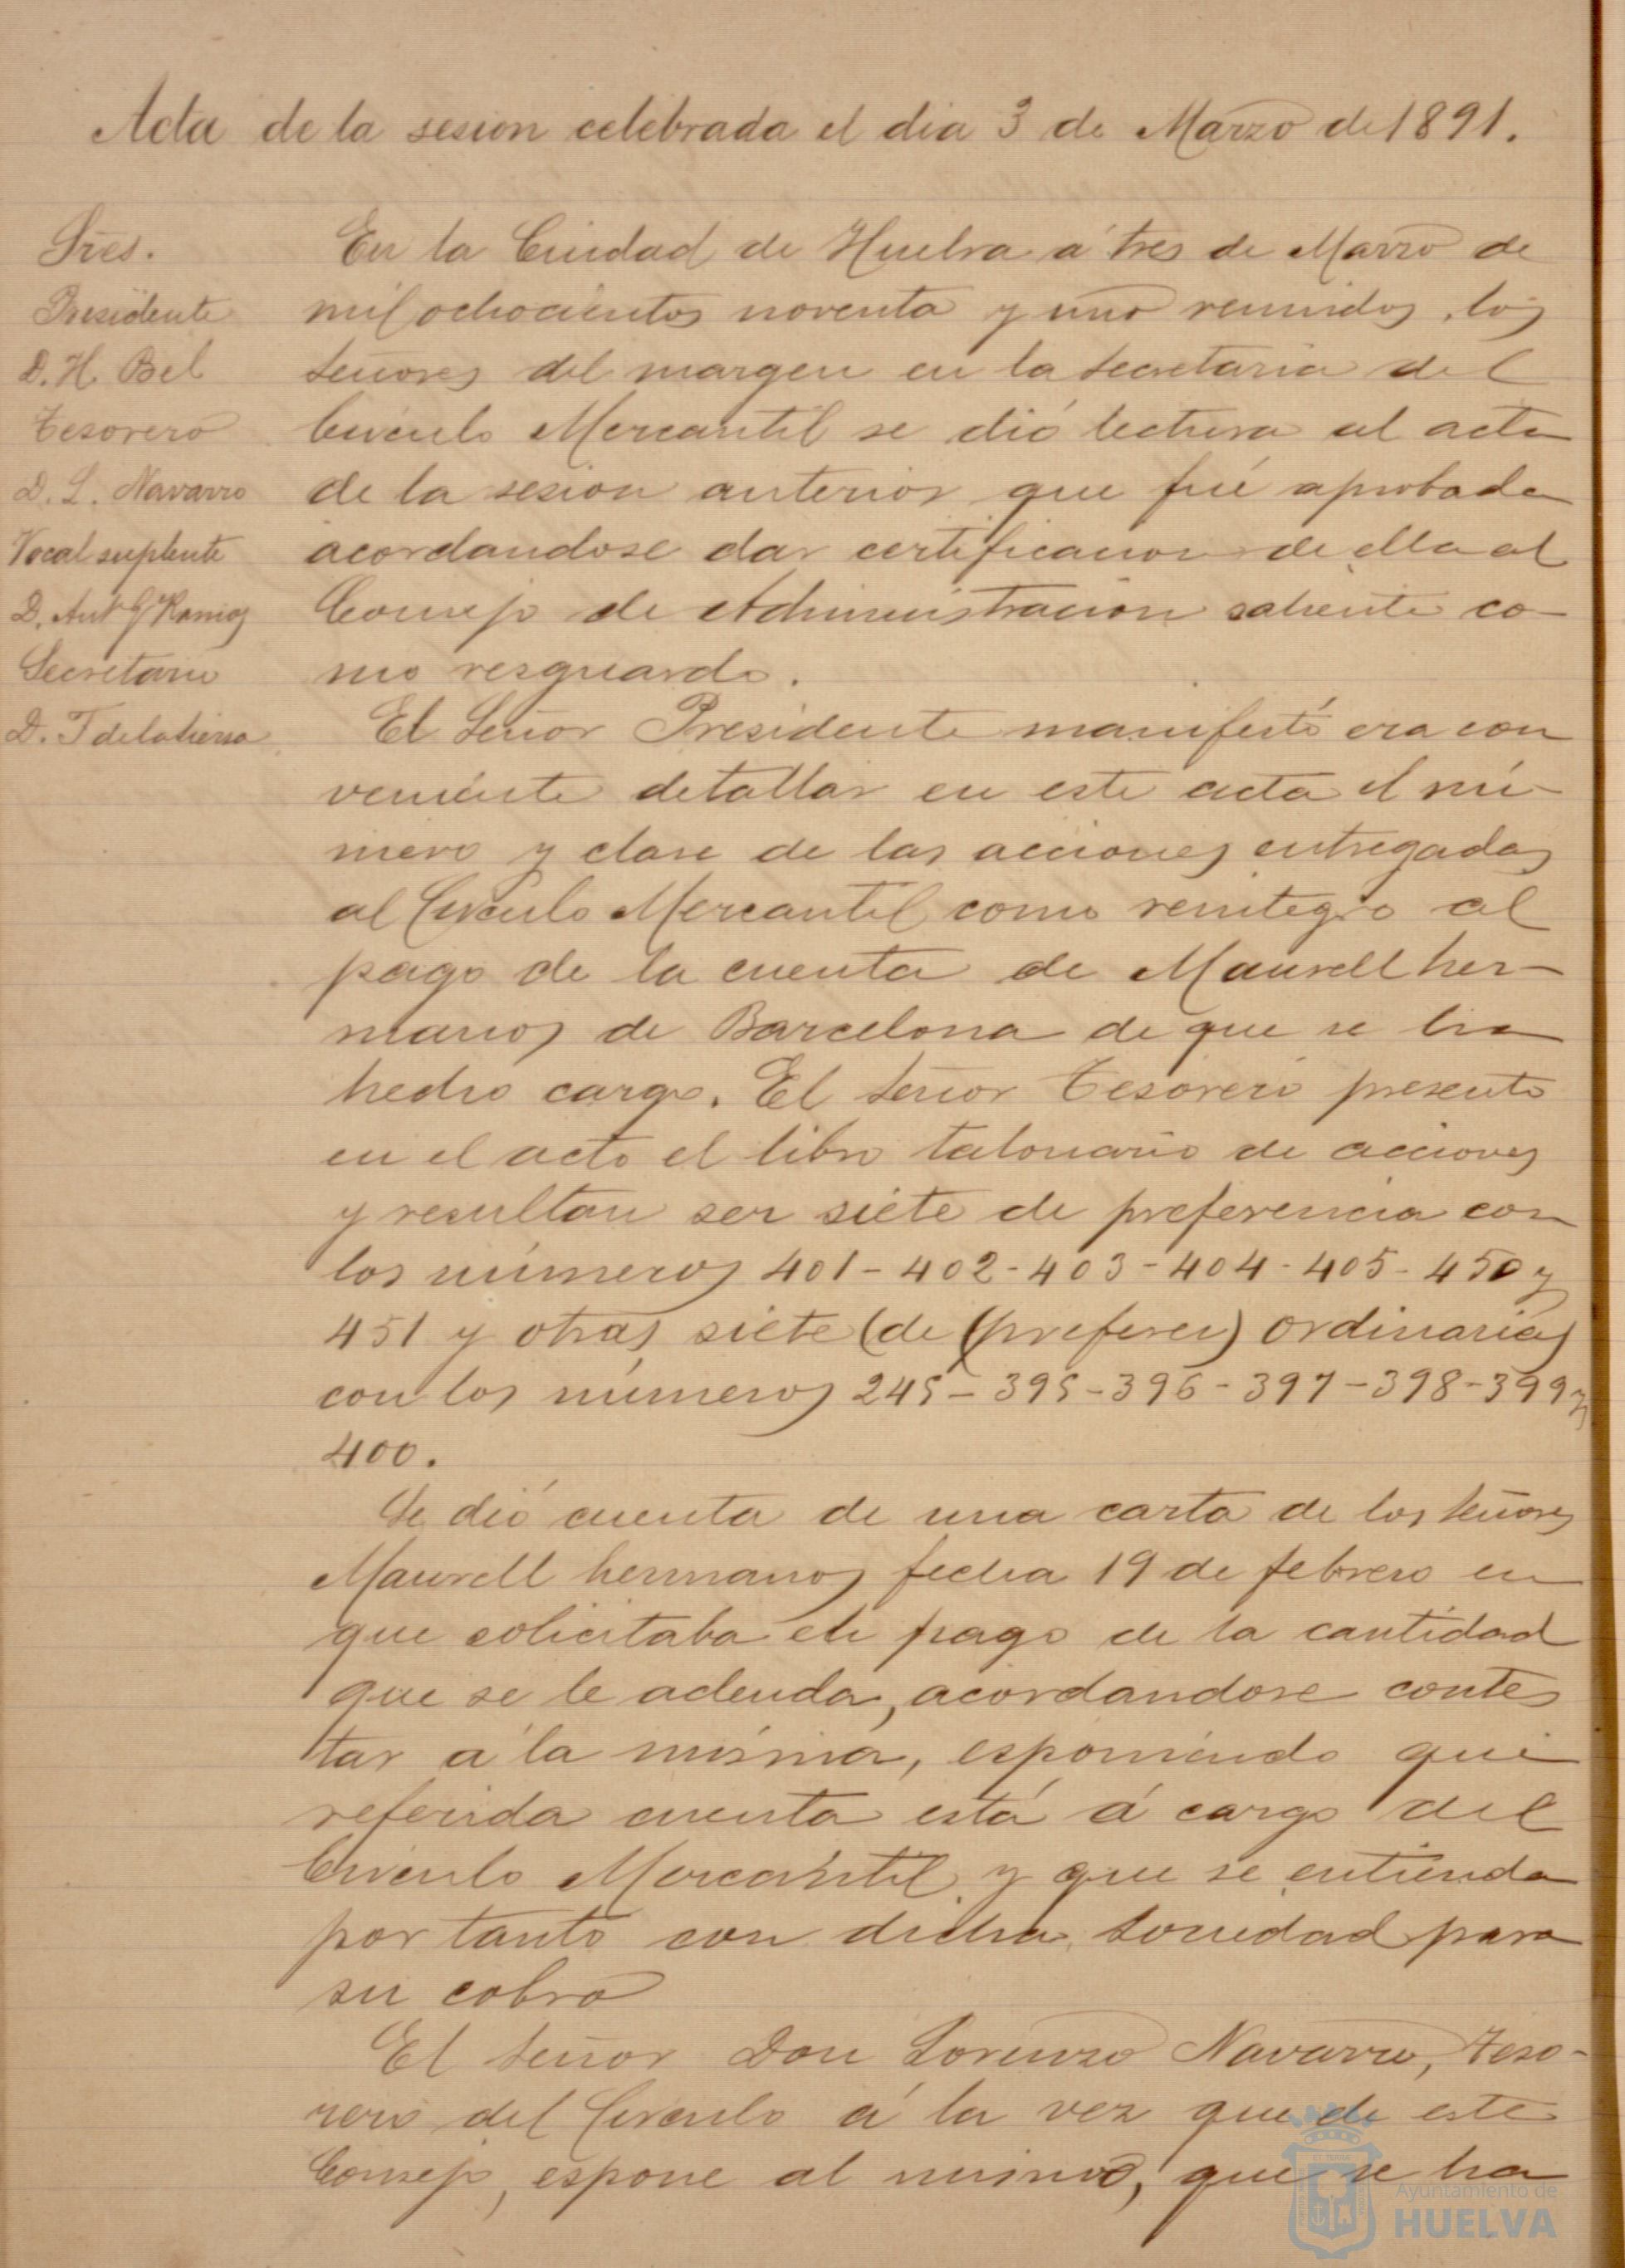 Acta de la sesion celebrada el dia 3 de Marzo de 1891.
Sres.
Presidente
D. H. Bel
Tesorero
D. L. Navarro
Vocal suplente
D. Ant G Ramos
Secretario
D. T de la hierro
En la Ciudad de Huelva á tres de Marzo de
mil ochocientos noventa y uno reunidos los
señores del margen en la secretaria del
Circulo Mercantil se dió lectura al acta
de la sesion anterior que fué aprobada
acordandose dar certificacion de ella al
Consejo de Administracion saliente co-
mo resguardo.
El Señor Presidente manifestó era con
veniente detallar en este acta el nú-
mero y clase de las acciones entregadas
al Circulo Mercantil como reintegro al
pago de la cuenta de Maurell her-
manos de Barcelona de que se ha
hecho cargo. El Señor Tesorero presento
en el acto el libro talonario de acciones
y resultan ser siete de preferencia con
los números 401-402-403-404-405-450 y
451 y otras siete (de (preferen) ordinarias
con los números 245-395-396-397-398-399 y
400.
Se dió cuenta de una carta de los señores
Maurell hermanos fecha 19 de febrero en
que solicitaba el pago de la cantidad
que se le adeuda, acordandose contes
tar á la misma, esponiendo que
referida cuenta está á cargo del
Circulo Mercantil y que se entienda
por tanto con dicha sociedad para
su cobro
El Señor Don Lorenzo Navarro, teso-
rero del Circulo á la vez que de este
Consejo, espone al mismo, que se ha
Ayuntamiento de
HUELVA